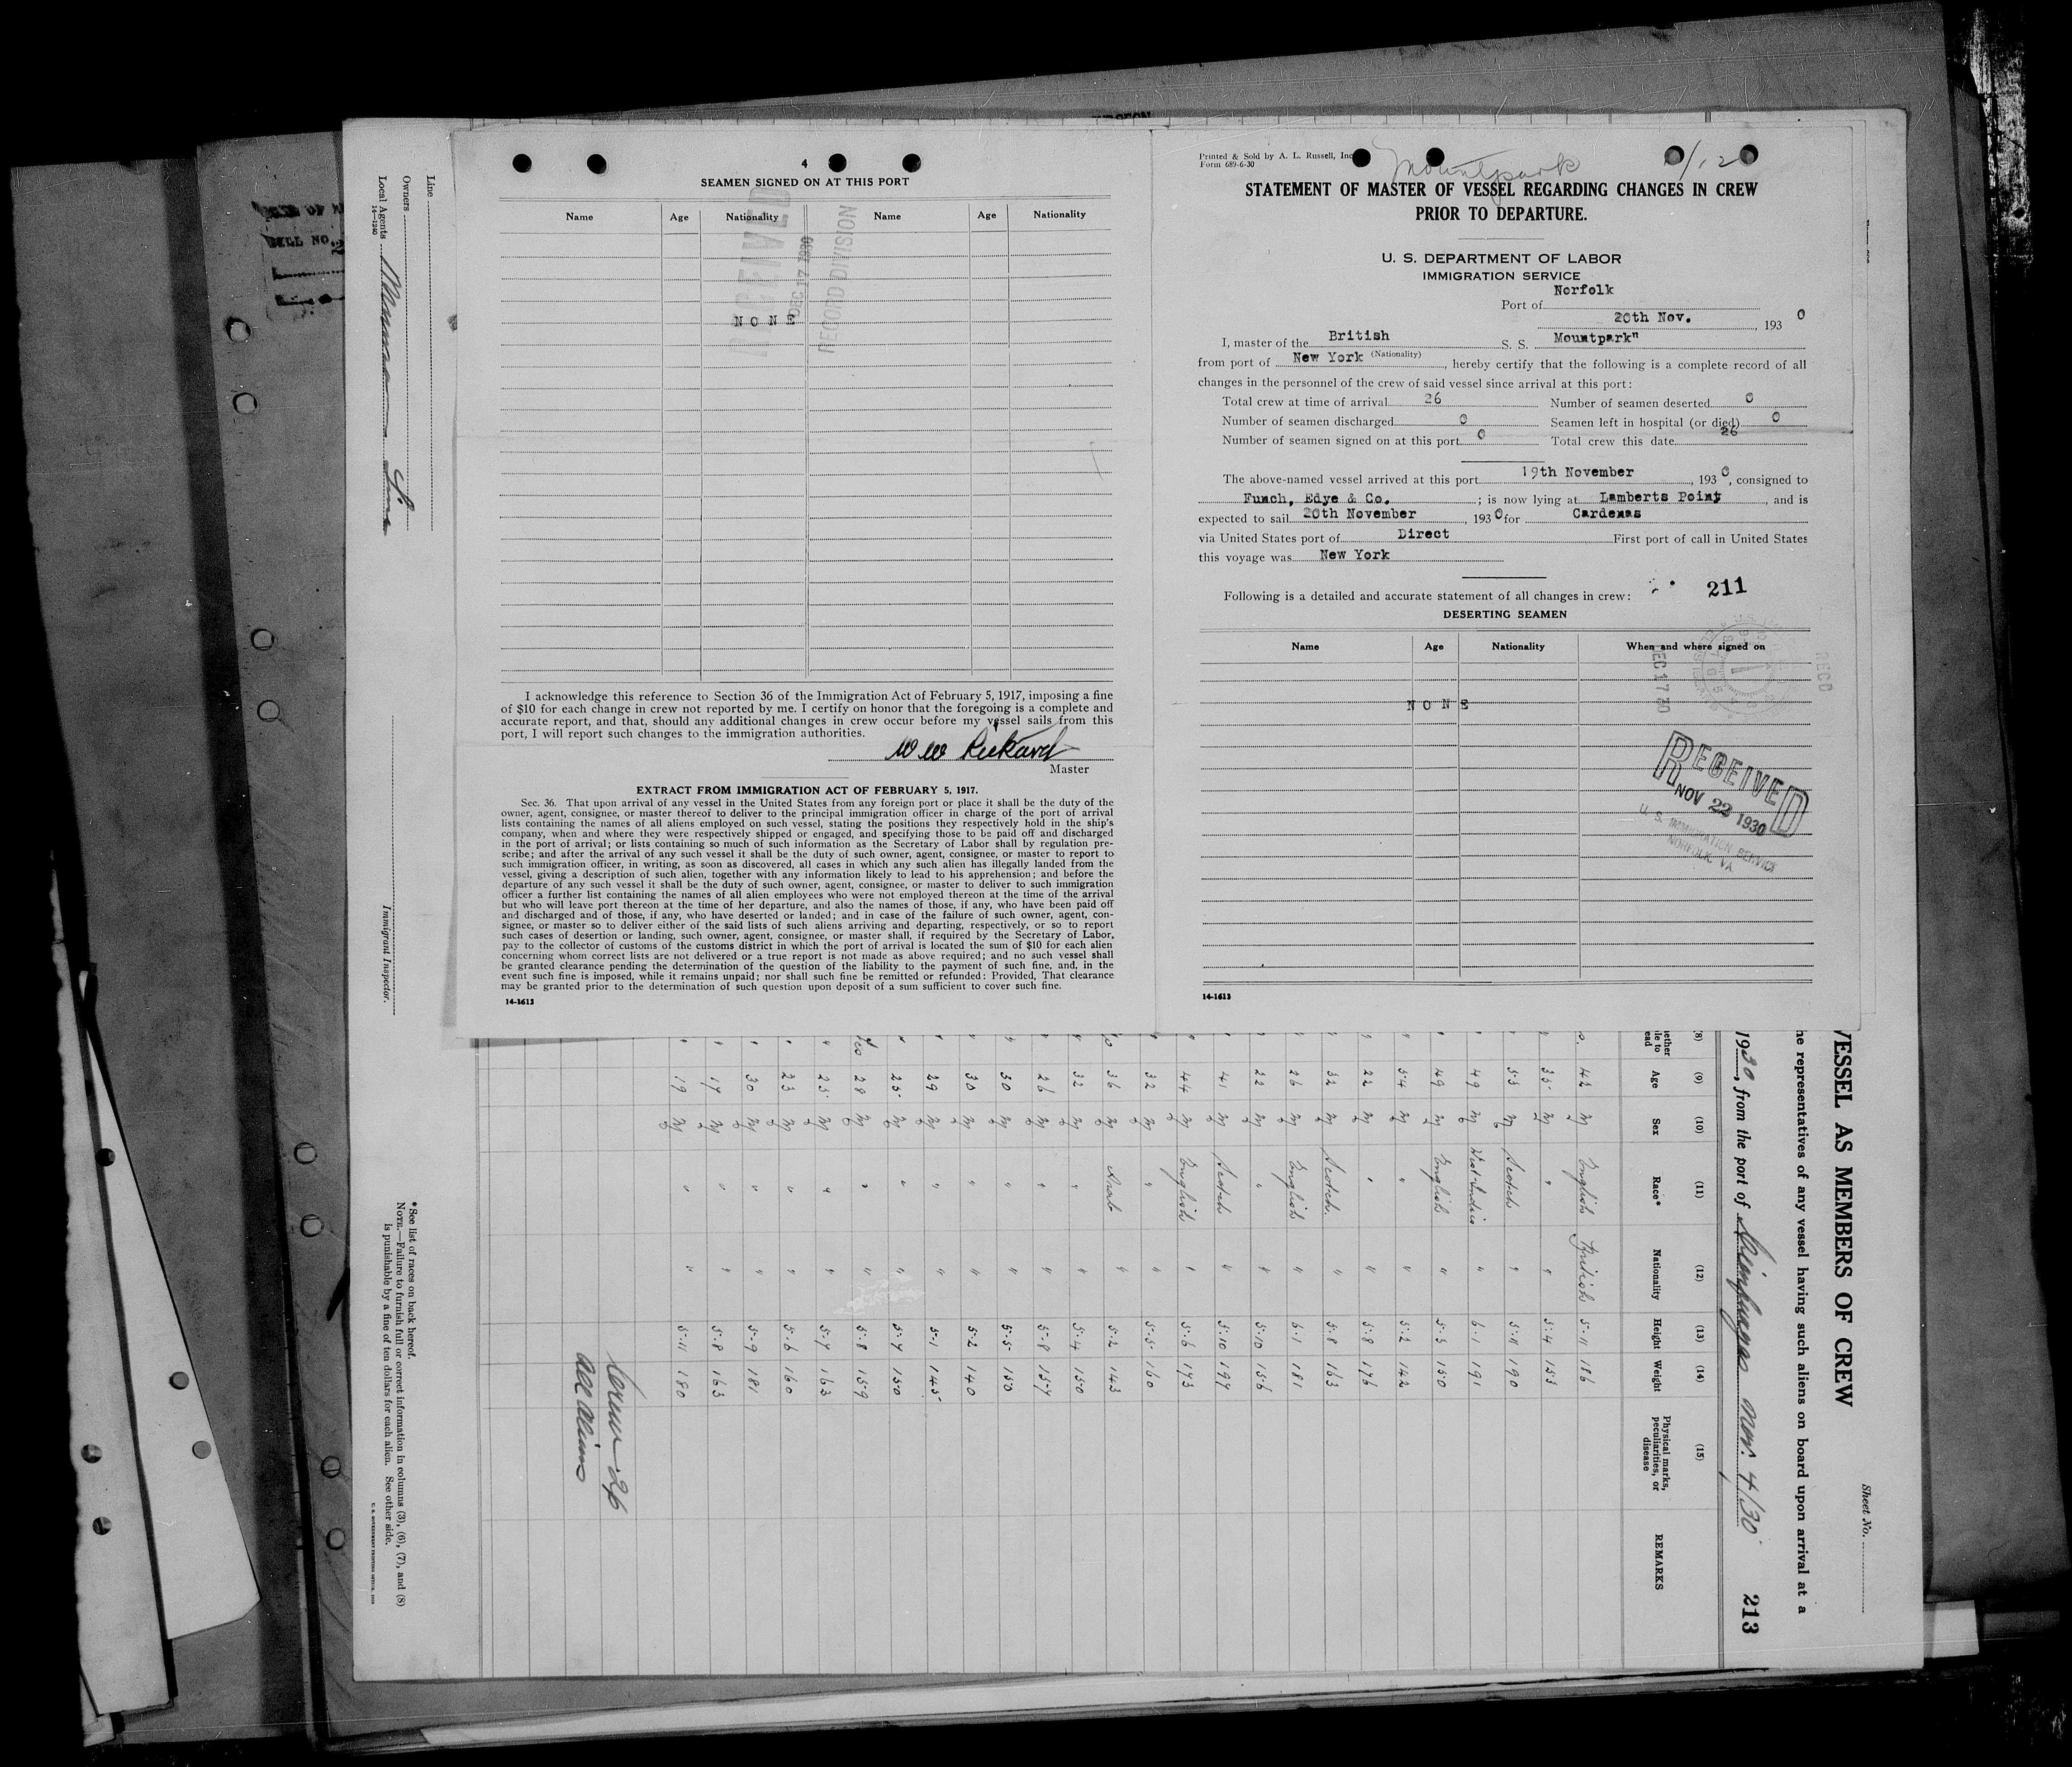 4
SEAMEN SIGNED ON AT THIS PORT
Name Age Nationality Name Age Nationality
RECEIVED
DEC 17 1930
RECORD DIVISION
NONE
I acknowledge this reference to Section 36 of the Immigration Act of February 5, 1917, imposing a fine
of $10 for each change in crew not reported by me. I certify on honor that the foregoing is a complete and
accurate report, and that, should any additional changes in crew occur before my vessel sails from this
port, I will report such changes to the immigration authorities.
W W Rickard
Master
EXTRACT FROM IMMIGRATION ACT OF FEBRUARY 5, 1917.
Sec. 36. That upon arrival of any vessel in the United States from any foreign port or place it shall be the duty of the
owner, agent, consignee, or master thereof to deliver to the principal immigration officer in charge of the port of arrival
lists containing the names of all aliens employed on such vessel, stating the positions they respectively hold in the ship's
company, when and where they were respectively shipped or engaged, and specifying those to be paid off and discharged
in the port of arrival; or lists containing so much of such information as the Secretary of Labor shall by regulation pre-
scribe; and after the arrival of any such vessel it shall be the duty of such owner, agent, consignee, or master to report to
such immigration officer, in writing, as soon as discovered, all cases in which any such alien has illegally landed from the
vessel, giving a description of such alien, together with any information likely to lead to his apprehension; and before the
departure of any such vessel it shall be the duty of such owner, agent, consignee, or master to deliver to such immigration
officer a further list containing the names of all alien employees who were not employed thereon at the time of the arrival
but who will leave port thereon at the time of her departure, and also the names of those, if any, who have been paid off
and discharged and of those, if any, who have deserted or landed; and in case of the failure of such owner, agent, con-
signee, or master so to deliver either of the said lists of such aliens arriving and departing, respectively, or so to report
such cases of desertion or landing, such owner, agent, consignee, or master shall, if required by the Secretary of Labor,
pay to the collector of customs of the customs district in which the port of arrival is located the sum of $10 for each alien
concerning whom correct lists are not delivered or a true report is not made as above required; and no such vessel shall
be granted clearance pending the determination of the question of the liability to the payment of such fine, and, in the
event such fine is imposed, while it remains unpaid; nor shall such fine be remitted or refunded: Provided, That clearance
may be granted prior to the determination of such question upon deposit of a sum sufficient to cover such fine.
14-1613
Printed & Sold by A. L. Russell, Inc
Form 689-6-30
Mountpark
STATEMENT OF MASTER OF VESSEL REGARDING CHANGES IN CREW
PRIOR TO DEPARTURE.
U. S. DEPARTMENT OF LABOR
IMMIGRATION SERVICE
Port of Norfolk
20th Nov., 1930
I, master of the British S. S. Mountpark"
from port of New York (Nationality), hereby certify that the following is a complete record of all
changes in the personnel of the crew of said vessel since arrival at this port:
Total crew at time of arrival 26 Number of seamen deserted 0
Number of seamen discharged 0 Seamen left in hospital (or died) 0
Number of seamen signed on at this port 0 Total crew this date 26
The above-named vessel arrived at this port 19th November, 1930, consigned to
Funch, Edye & Co.; is now lying at Lamberts Point, and is
expected to sail 20th November, 1930 for Cardenas
via United States port of Direct First port of call in United States
this voyage was New York
211
Following is a detailed and accurate statement of all changes in crew:
DESERTING SEAMEN
Name Age Nationality When and where signed on
DEC 17 30
NONE
RECEIVED
NOV 22 1930
U. S. IMMIGRATION SERVICE
NORFOLK, VA
14-1613
Line
Owners
Local Agents
14-1240
Immigrant Inspector.
*See list of races on back hereof.
NOTE.—Failure to furnish full or correct information in columns (3), (6), (7), and (8)
is punishable by a fine of ten dollars for each alien. See other side.
BILL NO.
Sheet No.
VESSEL AS MEMBERS OF CREW
he representatives of any vessel having such aliens on board upon arrival at a
1930, from the port of Cienfuegos Nov. 4/30
213
(8) (9) (10) (11) (12) (13) (14) (15)
Age Sex Race* Nationality Height Weight Physical marks, peculiarities, or disease REMARKS
42 M English British 5-11 186
35 M " " 5-4 155
53 M Scotch " 5-11 190
49 M West Indies " 6-1 191
49 M English " 5-3 150
54 M " " 5-2 142
22 M " " 5-8 176
32 M Scotch " 5-8 163
26 M English " 6-1 181
22 M " " 5-10 156
41 M Scotch " 5-10 197
44 M English " 5-6 173
32 M " " 5-5 160
36 M Arab " 5-2 143
32 M " " 5-4 150
26 M " " 5-8 157
30 M " " 5-5 150
30 M " " 5-2 140
29 M " " 5-1 145
25 M " " 5-7 150
28 M " " 5-8 159
25 M " " 5-7 163
23 M " " 5-6 160
30 M " " 5-9 181
17 M " " 5-8 163
19 M " " 5-11 180
Crew 26
all aliens